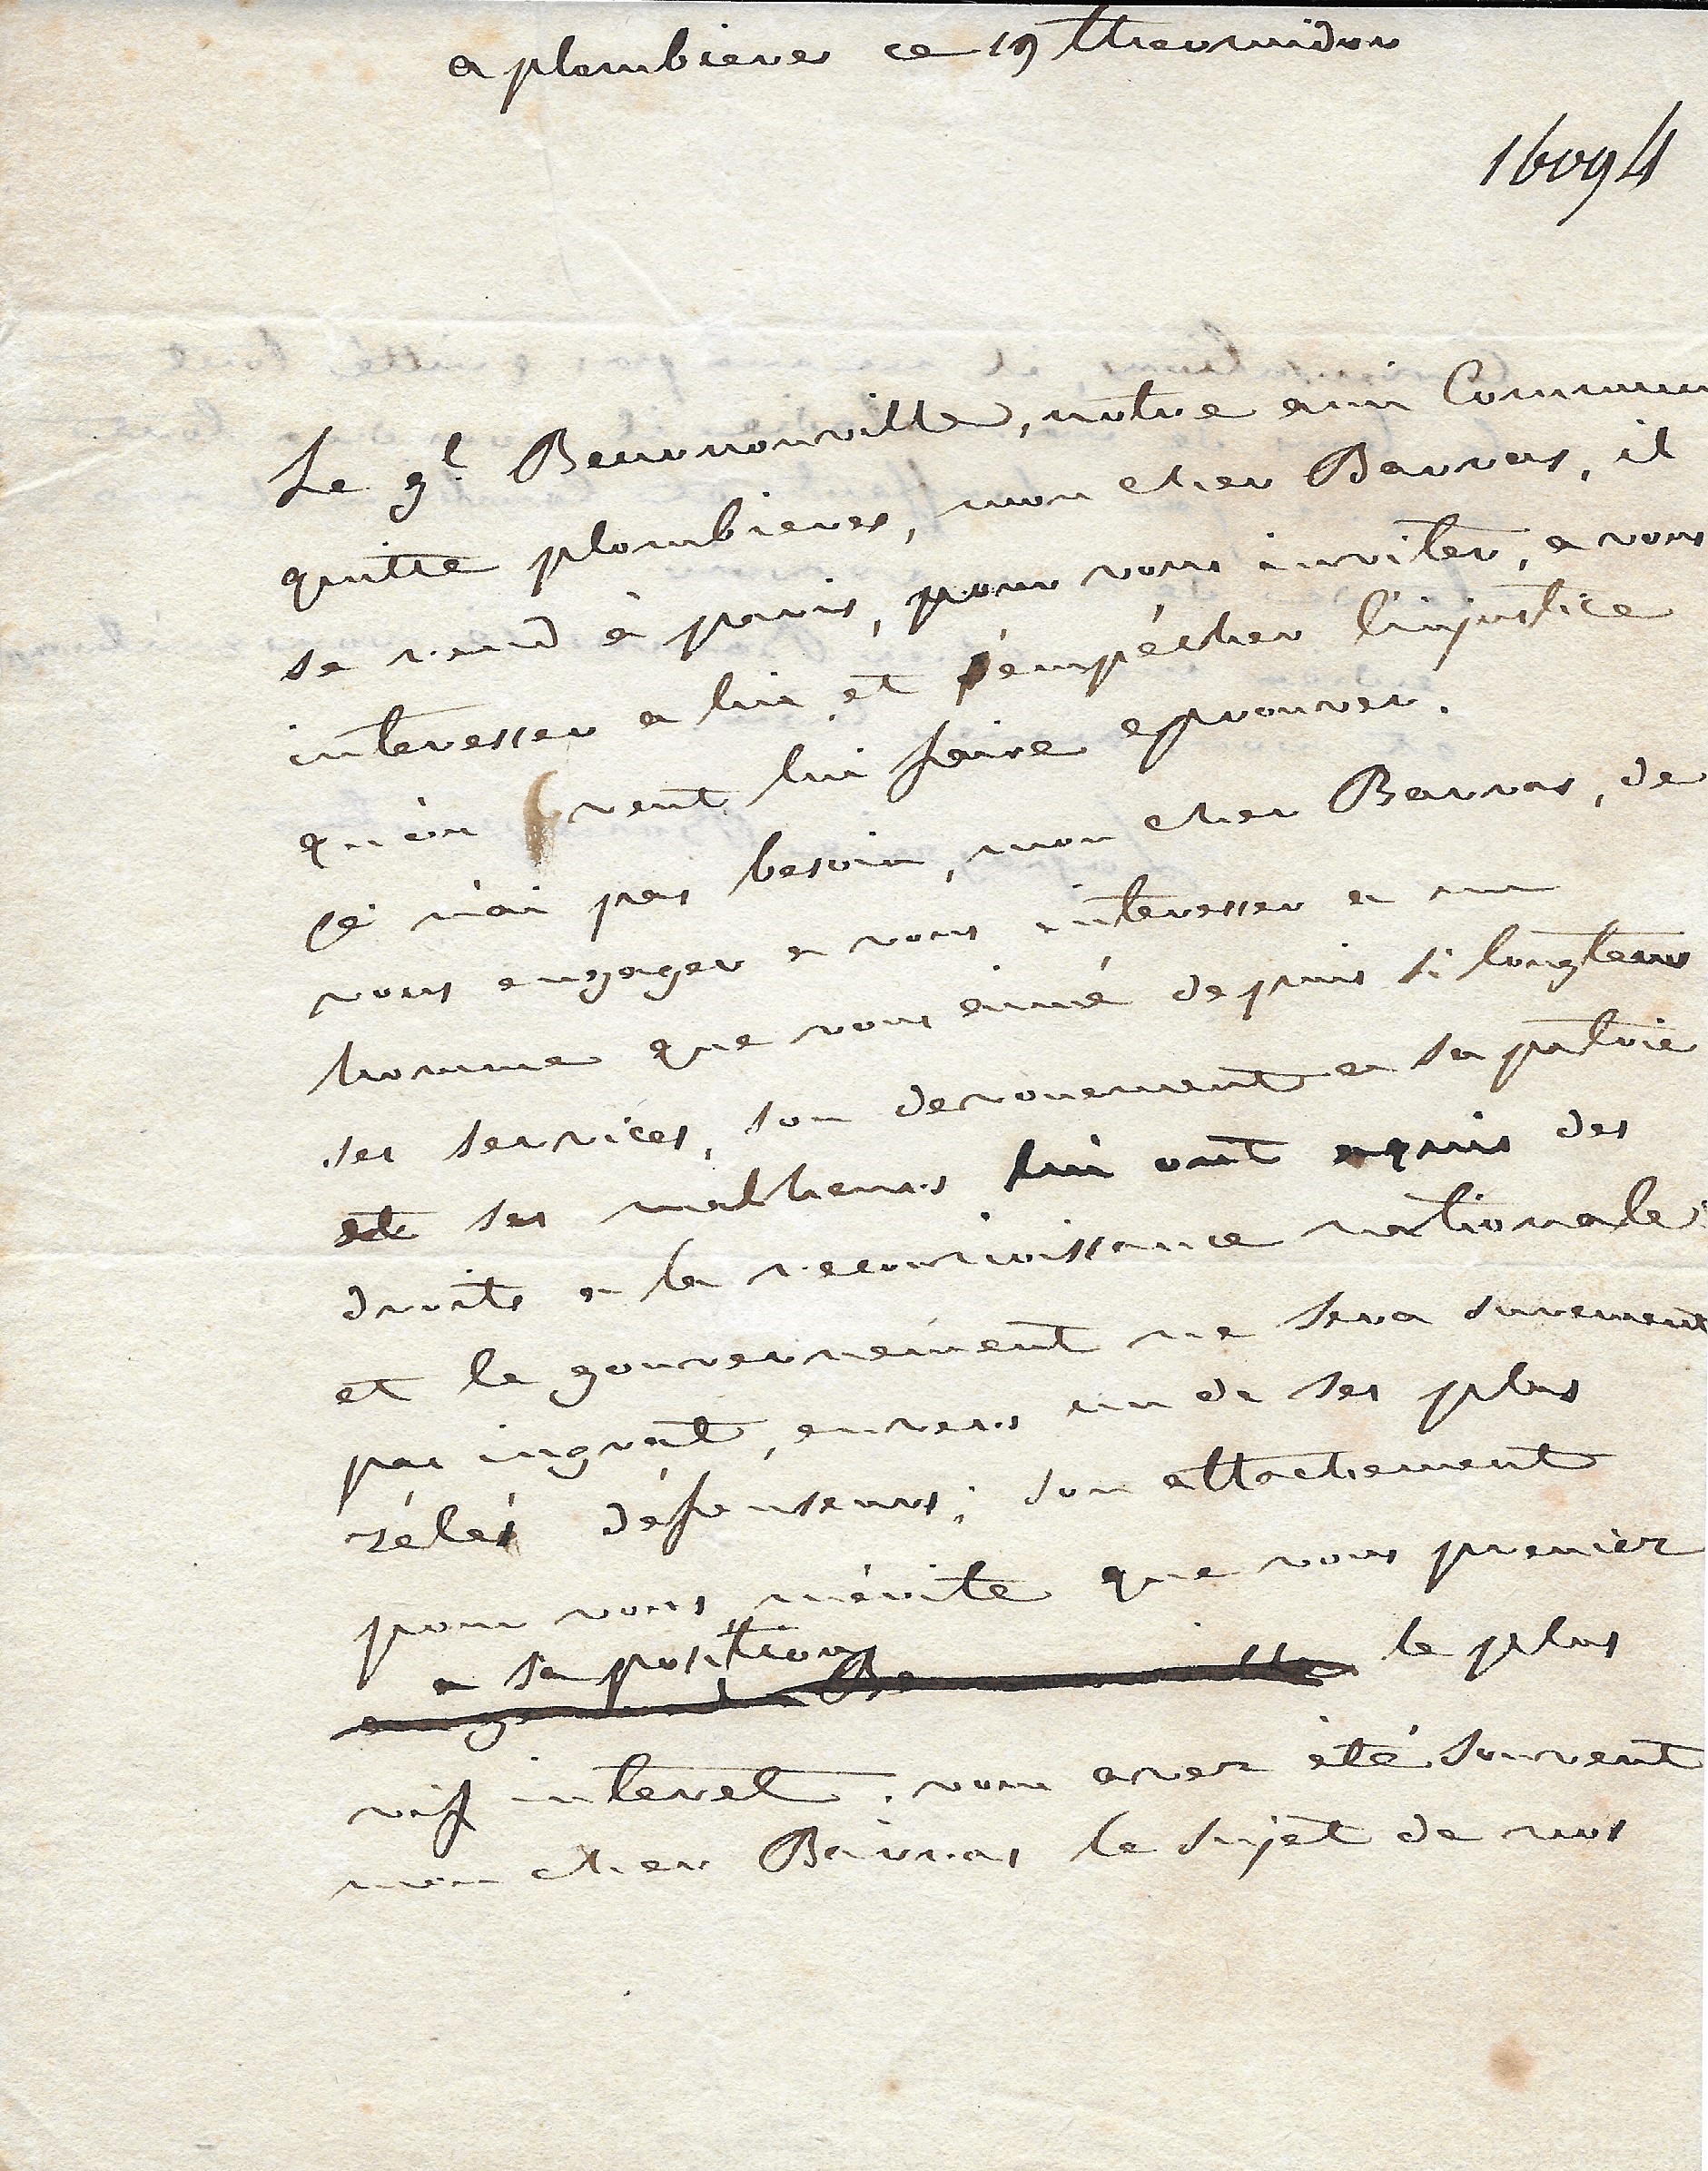 a plombieres ce 19 thermidor
16094
Le gl. Beurnonville, notre ami Commun
quitte plombieres, mon cher Barras, il
se rend à paris, pour vous inviter, a vous
interesser a lui, et d'empécher l'injustice
qu'on veut lui faire eprouver.
Je n'ai pas besoin, mon cher Barras, de
vous engager a vous interesser a un
homme que vous aimé depuis si longtems
ses services, son devouement a sa patrie
et ses malheurs lui ont aquis des
droits a la reconnoissance nationale
et le gouvernement ne sera surement
pas ingrat, envers un de ses plus
zélés défenseurs; son attachement
pour vous mérite que vous preniez
a sa position
le plus
vif interet. vous avez été souvent
mon cher Barras le sujet de nos